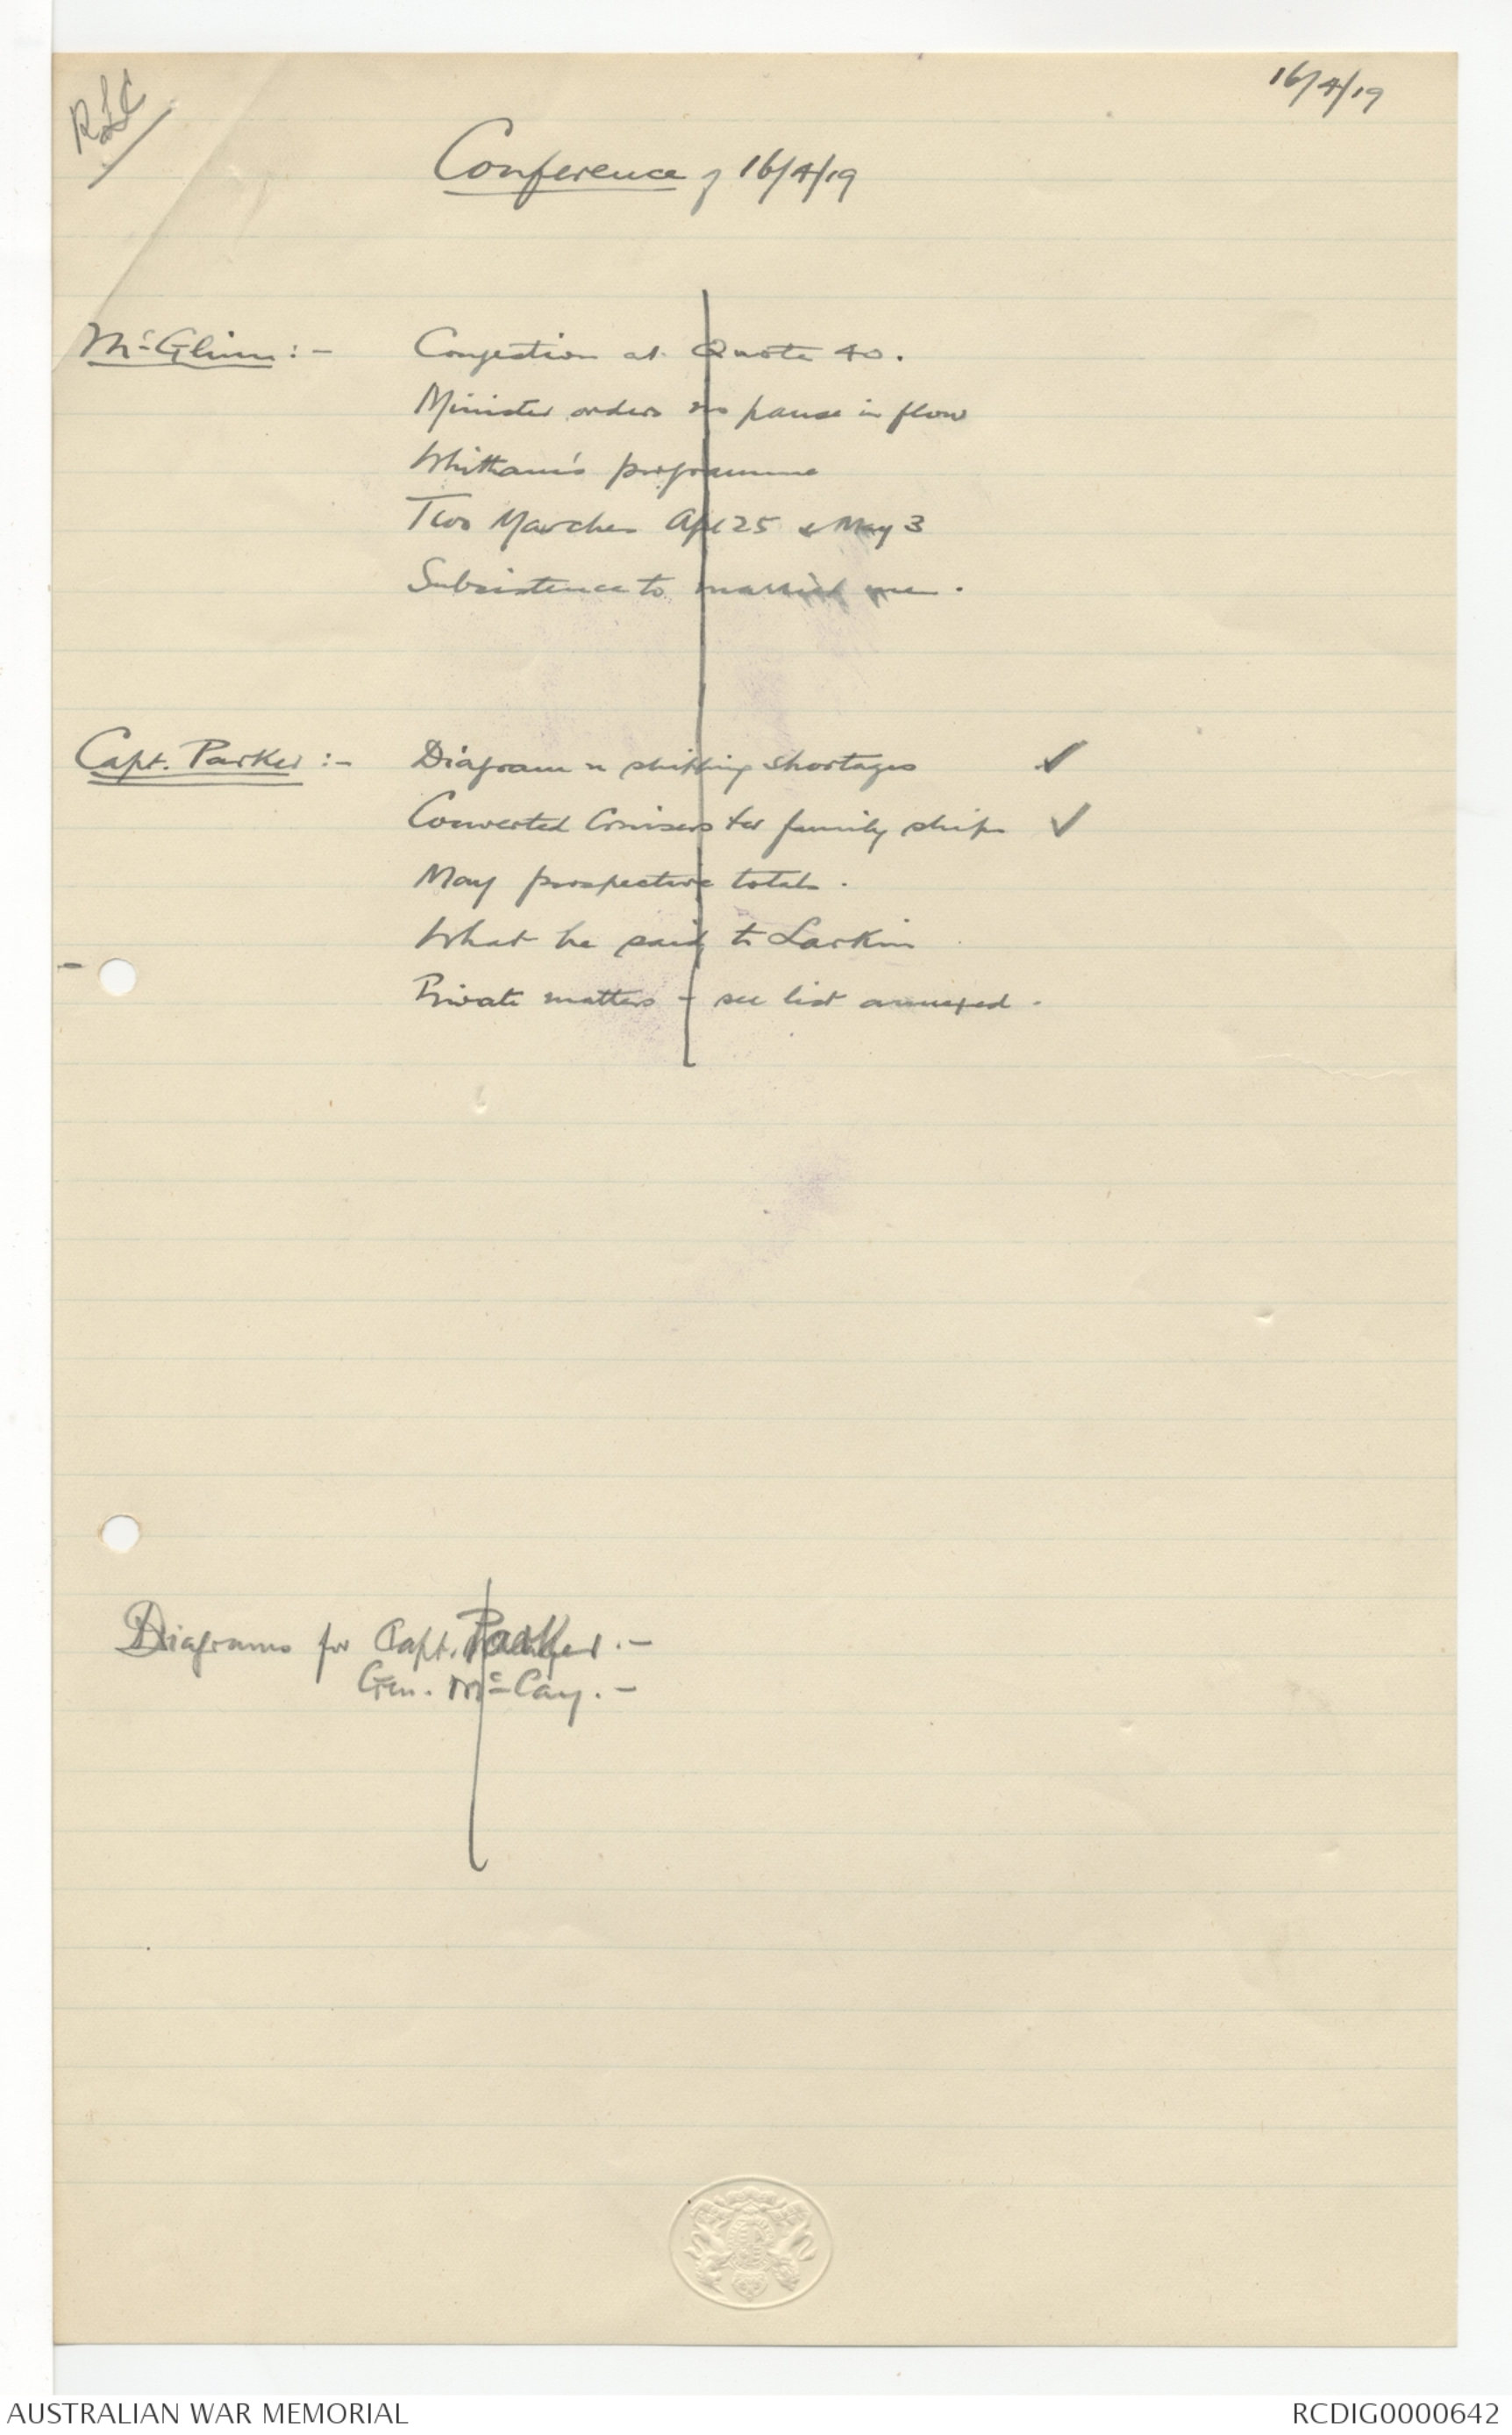 16/4/19
Conference of 16/4/19
McGlinn:- Congestion at Quota 40.
Minister orders no pause in flow
Whitham's programme
Two Marches Apl 25 & May 3
Subsistence to married men.
Capt. Parker:- Diagram re shipping shortages ✓
Converted Cruisers for family ships ✓
May prospective totals.
What he said to Larkin
Private matters - see list annexed.
Diagrams for Capt. Parker.-
Gen. McCay.-
AUSTRALIAN WAR MEMORIAL
RCDIG0000642